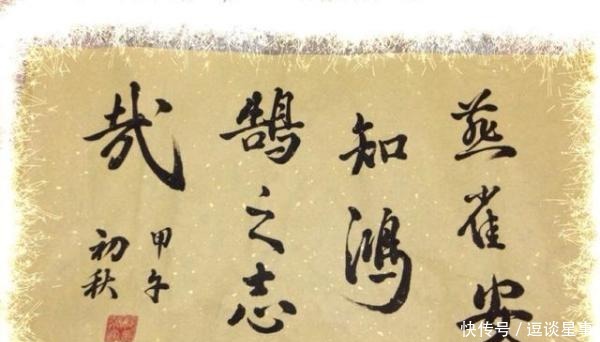 燕雀安
知鸿
鹄之志
哉
甲午
初秋
快传号/逗谈星事